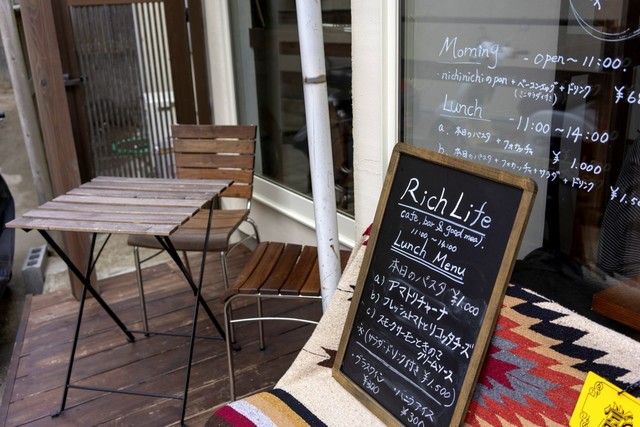 Morning - open~11:00
nichinichiのpan + ベーコンエッグ + ドリンク
(ミニサラダ付き)
Lunch - 11:00~14:00
a. 本日のパスタ + フォカッチャ
¥1,000
b. 本日のパスタ + フォカッチャ + サラダ + ドリンク
Rich Life
cafe, bar & good meal
11:00 ~ 14:00
Lunch Menu
本日のパスタ ¥1000
a) アマトリチャーナ
b) フレッシュトマトとリコッタチーズ
c) スモークサーモンときのこ
クリームソース
※(サラダ・ドリンク付き ¥1,500)
・グラスワイン
・バニラアイス
¥300